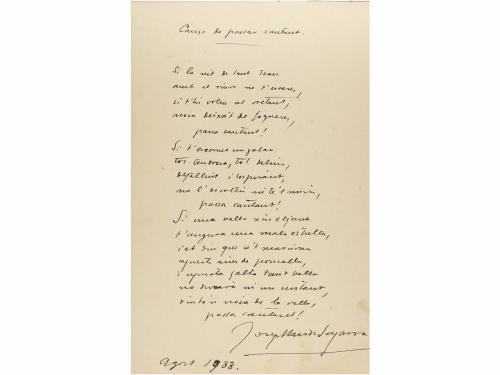 Cançó de passar cantant.
Si la nit de Sant Joan
amb el riure no t'enceres,
si t'hi volen al voltant,
noia deixa't de fogueres,
passa cantant!
Si t'escomet un galan
tot tendresa, tot deliri,
defallint i sospirant,
no l'escoltis ni te'l miris,
passa cantant!
Si una vella xiuxejant
t'augura una mala estrella,
i et diu que se't marciran
aquests aires de poncella,
i aquesta galta tant bella
no durarà ni un instant,
riu-te'n noia de la vella,
passa cantant!
Josep Maria de Sagarra
Agost 1933.